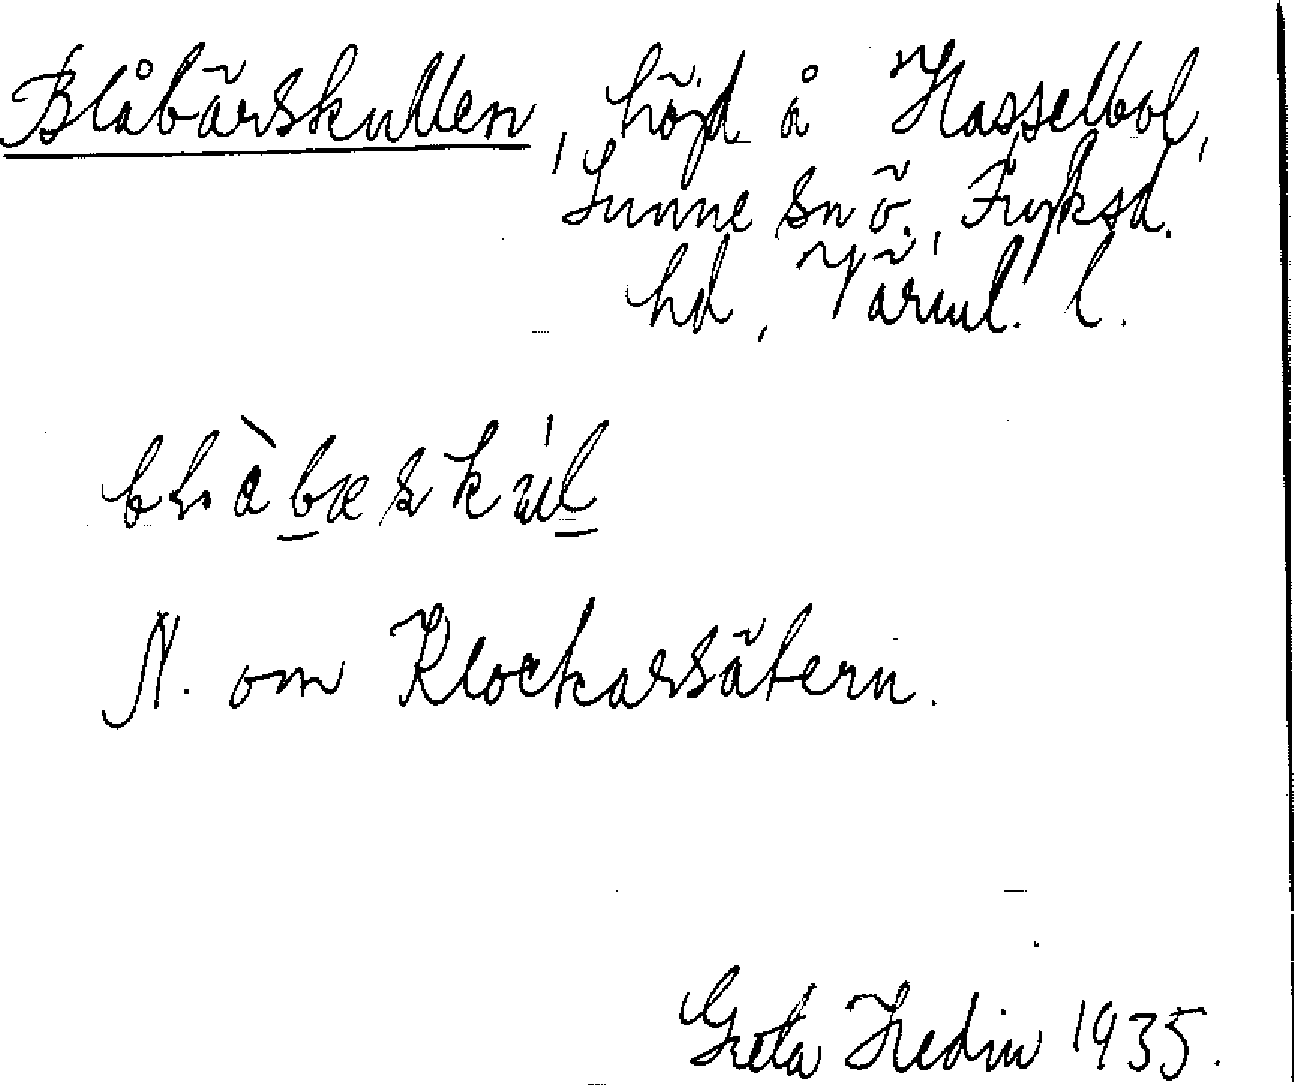 Blåbärskullen, höjd å Hasselbol,
Sunne sn ö., Fryksd.
hd, Värml. l.
N. om Klockarsätern.
Greta Hedin 1935.